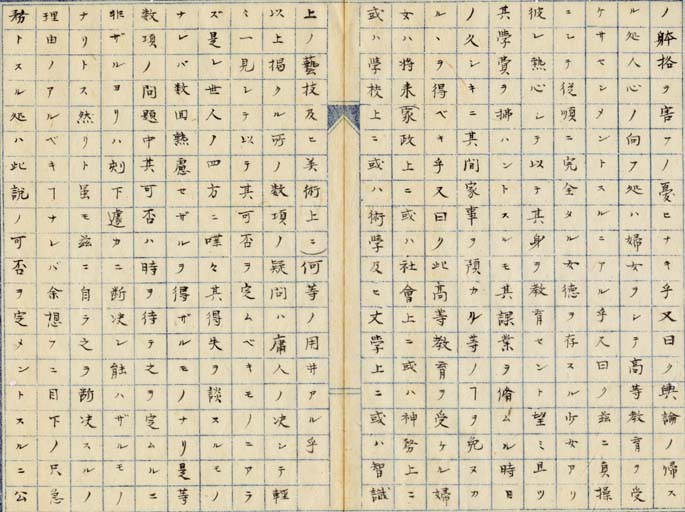 ノ躰格ヲ害フノ憂ヒナキ乎又曰ク輿論ノ帰ス
ル処人心ノ向フ処ハ婦女ヲシテ高等教育ヲ受
ケサセシメントスルニアル乎又曰ク茲ニ貞操
ニシテ従順ニ完全タル女徳ヲ存スル少女アリ
彼レ熱心シテ以テ其身ヲ教育セント望ミ且ツ
其学費ヲ拂ハントスルモ其課業ヲ脩ムル時日
ノ久シキニ其間家事ヲ預カル等ノヿヲ免ヌカ
ルヽヲ得ベキ乎又曰ク此高等教育ヲ受ケル婦
女ハ将来家政上ニ或ハ社會上ニ或ハ神務上ニ
或ハ学校上ニ或ハ術学及ヒ文学上ニ或ハ智識
上ノ藝技及ヒ美術上ニ)何等ノ用井アル乎
以上掲クル所ノ数項ノ疑問ハ庸人ノ决シテ軽
ミ一見シテ以テ其可否ヲ定ムベキモノニアラ
ズ是レ世人ノ四方ニ喋々其得失ヲ談スルモノ
ナレバ数回熟慮セザルヲ得ザルモノナリ是等
数項ノ問題中其可否ハ時ヲ待テ之ヲ定ムルニ
非ザルヨリハ刻下遽カニ断决シ能ハザルモノ
ナリトス然リト虽モ茲ニ自ラ之ヲ断决スルノ
理由ノアルベキヿナレバ余想フニ目下ノ只急
務トスル処ハ此説ノ可否ヲ定メントスルニ公